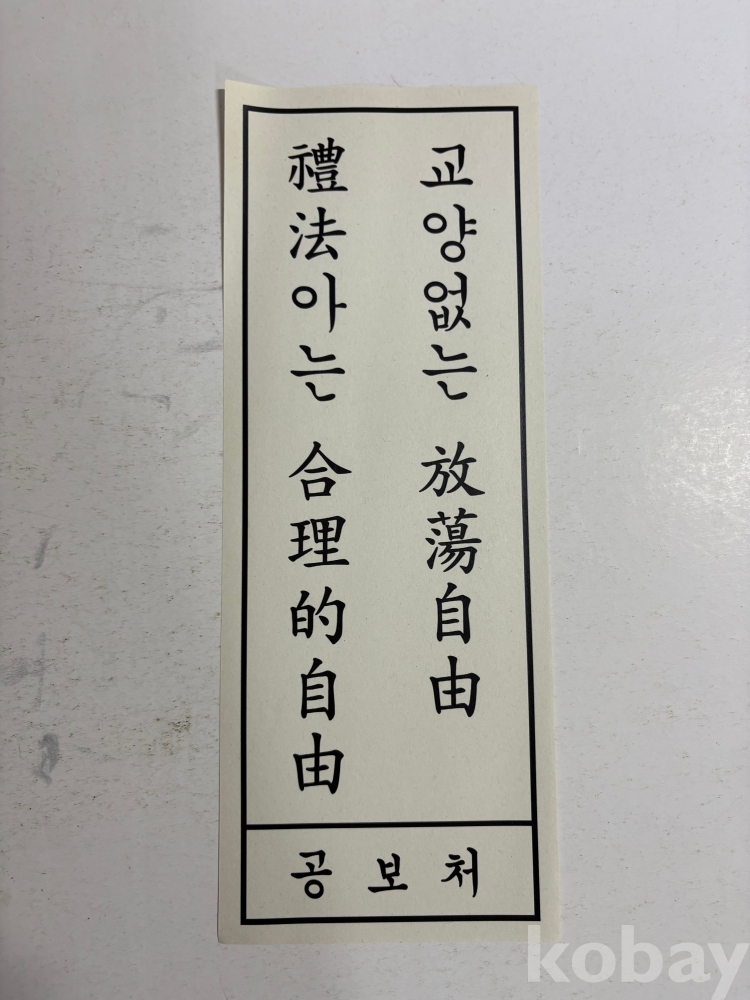 교양없는 放蕩自由
禮法아는 合理的自由
공보처
kobay